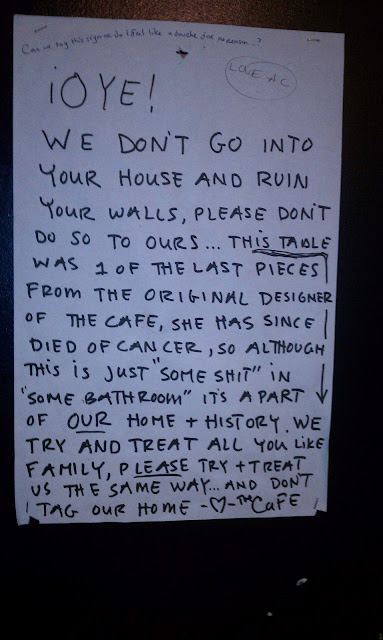 Can we tag this sign or do I feel like a douche for no reason..?
LOVE AC
¡OYE!
WE DON'T GO INTO
YOUR HOUSE AND RUIN
YOUR WALLS, PLEASE DON'T
DO SO TO OURS... THIS TABLE
WAS 1 OF THE LAST PIECES
FROM THE ORIGINAL DESIGNER
OF THE CAFE, SHE HAS SINCE
DIED OF CANCER, SO ALTHOUGH
THIS IS JUST "SOME SHIT" IN
"SOME BATHROOM" IT'S A PART
OF OUR HOME + HISTORY. WE
TRY AND TREAT ALL YOU LIKE
FAMILY, PLEASE TRY + TREAT
US THE SAME WAY... AND DON'T
TAG OUR HOME -♡- THE CAFE